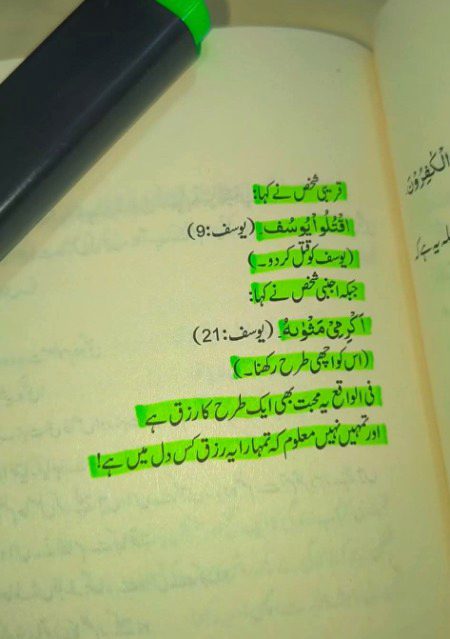 قریبی شخص نے کہا:
اقْتُلُوا يُوسُف (یوسف:9)
(یوسف کو قتل کر دو۔)
جبکہ اجنبی شخص نے کہا:
اَكْرِمِيْ مَثْوٰىهُ (یوسف:21)
(اس کو اچھی طرح رکھنا۔)
فی الواقع یہ محبت بھی ایک طرح کا رزق ہے
اور تمہیں نہیں معلوم کہ تمہارا یہ رزق کس دل میں ہے!
الْكٰفِرُوْنَ
یہ ہے کہ